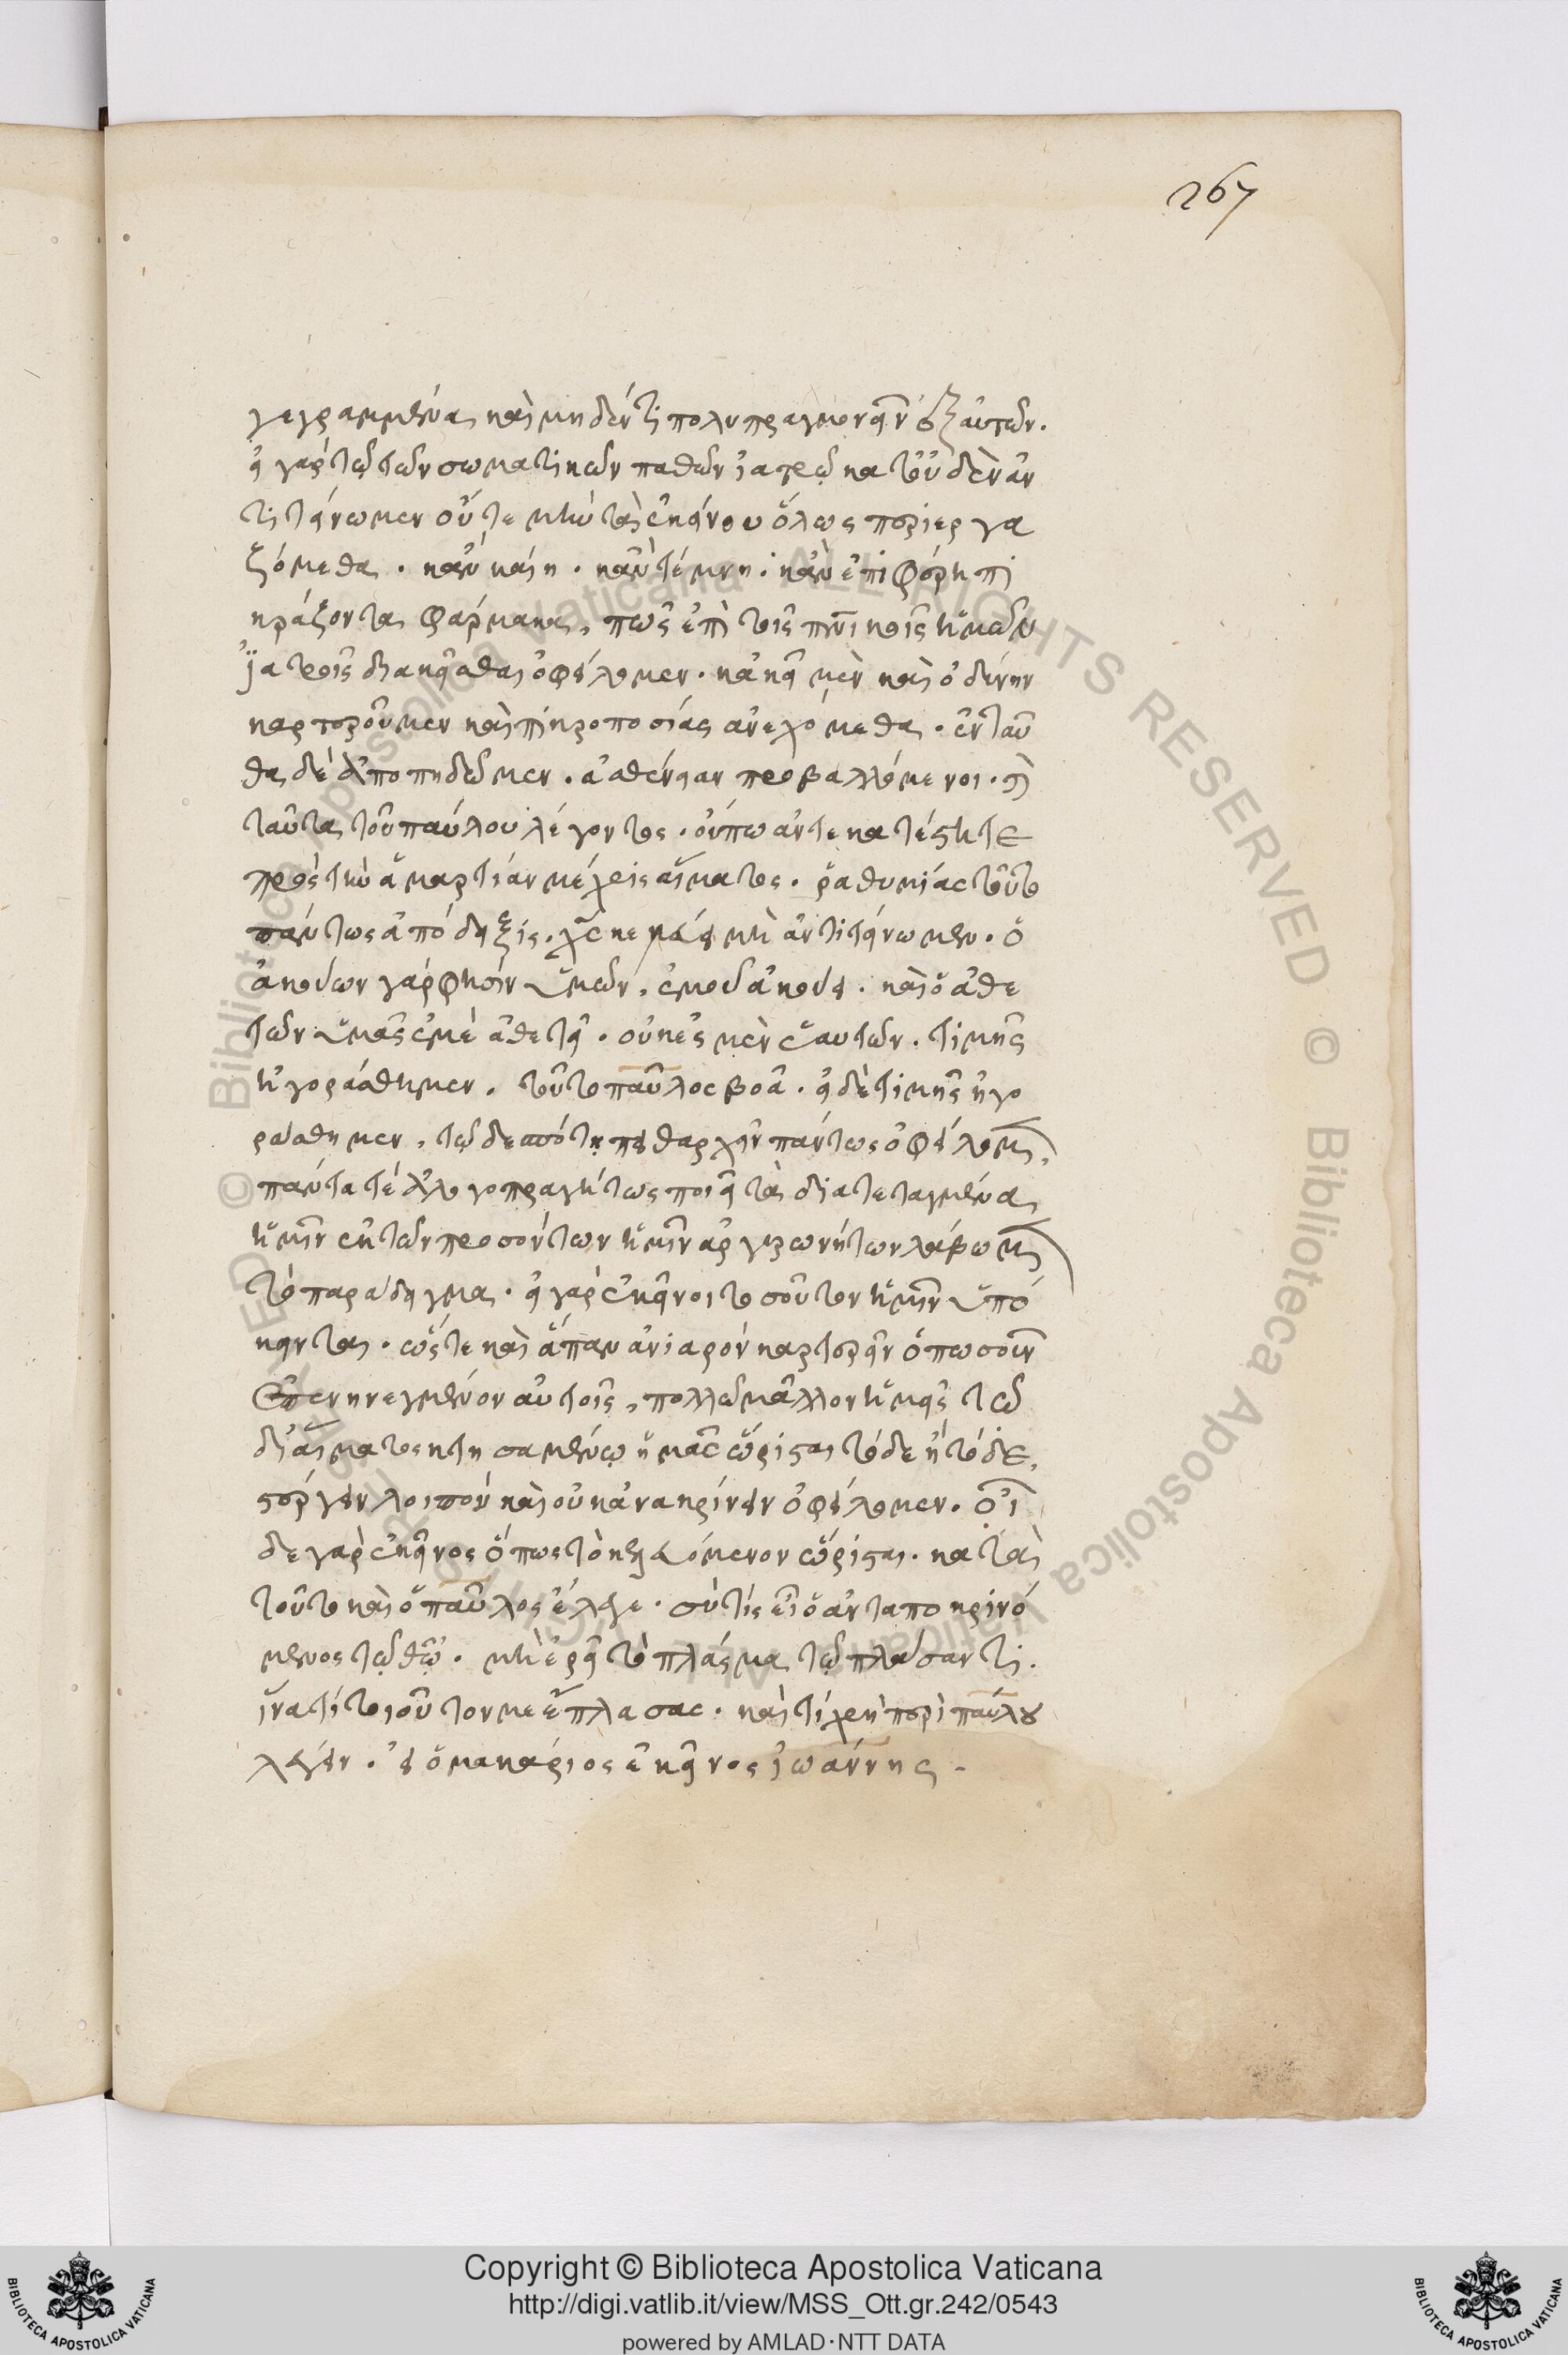 267
γεγραμμένα καὶ μηδέν τι πολυπραγμονεῖν ἐξ αὐτῶν.
εἰ γὰρ τῷ τῶν σωματικῶν παθῶν ἰατρῷ κατ' οὐδὲν ἀν
τιτείνωμεν οὔτε μὴν τὰ ἐκείνου ὅλως περιεργα
ζόμεθα. κἂν καίη. κἂν τέμνη. κἂν ἐπιφέρη πι
κράζοντα φάρμακα, πῶς ἐπὶ τοῖς πνικοῖς ἡμῶν
ἰατροῖς διακεῖσθαι ὀφείλομεν. κἀκεῖ μὲν καὶ ὀδύνην
καρτεροῦμεν καὶ πικροποσίας ἀνεχόμεθα. ἐνταῦ
θα δὲ ἀποπηδῶμεν. ἀσθένειαν προβαλλόμενοι. καὶ
ταῦτα τοῦ παύλου λέγοντος. οὔπω ἀντεκατέστητε
πρὸς τὴν ἁμαρτίαν μέχρις αἵματος. ῥαθυμίας τοῦτο
πάντως ἀπόδειξις. μὴ ἀντιτείνωμεν. ὁ
ἀκούων γάρ φησιν ὑμῶν, ἐμοῦ ἀκούει. καὶ ὁ ἀθε
τῶν ὑμᾶς ἐμὲ ἀθετεῖ. οὐκ ἐσμὲν ἑαυτῶν. τιμῆς
ἠγοράσθημεν. τοῦτο παῦλος βοᾶ. εἰ δὲ τιμῆς ἠγο
ράσθημεν, τῷ δεσπότῃ πειθαρχεῖν πάντως ὀφείλομεν,
πάντα τὲ ἀλογοπραγήτως ποιεῖ τὰ διατεταγμένα
ἡμῖν ἐκ τῶν προσόντων ἡμῖν ἀργυρωνήτων λάβωμεν
τὸ παράδειγμα. εἰ γὰρ ἐκεῖνοι τοσοῦτον ἡμῖν ὑπό
κεινται. ὥστε καὶ ἅπαν ἀνιαρὸν καρτερεῖν ὁπωσοῦν
ἐπενηνεγμένον αὐτοῖς, πολλῷ μᾶλλον ἡμεῖς τῷ
δι' αἵματος κτησαμένῳ ἡμᾶς ὥρισται τόδε ἢ τόδε,
στέργειν λοιπὸν καὶ οὐκ ἀνακρίνειν ὀφείλομεν. οἶ
δε γὰρ ἐκεῖνος ὅπως τὸ κελευόμενον ὥρισται. κατὰ
τοῦτο καὶ ὁ παῦλος ἔλεγε. σὺ τίς εἶ ὁ ἀνταποκρινό
μενος τῷ θῷ. μὴ ἐρεῖ τὸ πλάσμα τῷ πλάσαντι.
ἵνα τί τοιοῦτόν με ἔπλασας. καὶ τί χρὴ περὶ παύλου
λέγειν. εἰ ὁ μακάριος ἐκεῖνος ἰωάννης.
Copyright © Biblioteca Apostolica Vaticana
http://digi.vatlib.it/view/MSS_Ott.gr.242/0543
powered by AMLAD·NTT DATA